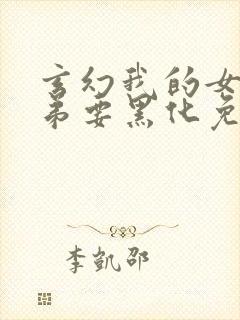 玄幻我的女
弟要黑化免
李凯邵